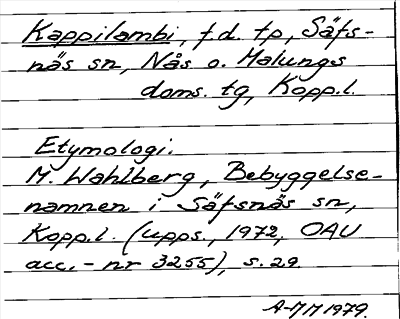 Kappilambi, f.d. tp, Säfs-
näs sn, Nås o. Malungs
doms. tg, Kopp.l.
Etymologi.
M. Wahlberg, Bebyggelse-
namnen i Säfsnäs sn,
Kopp.l. (Upps., 1972, OAU
acc.-nr 3255), s. 29.
A-MM 1979.